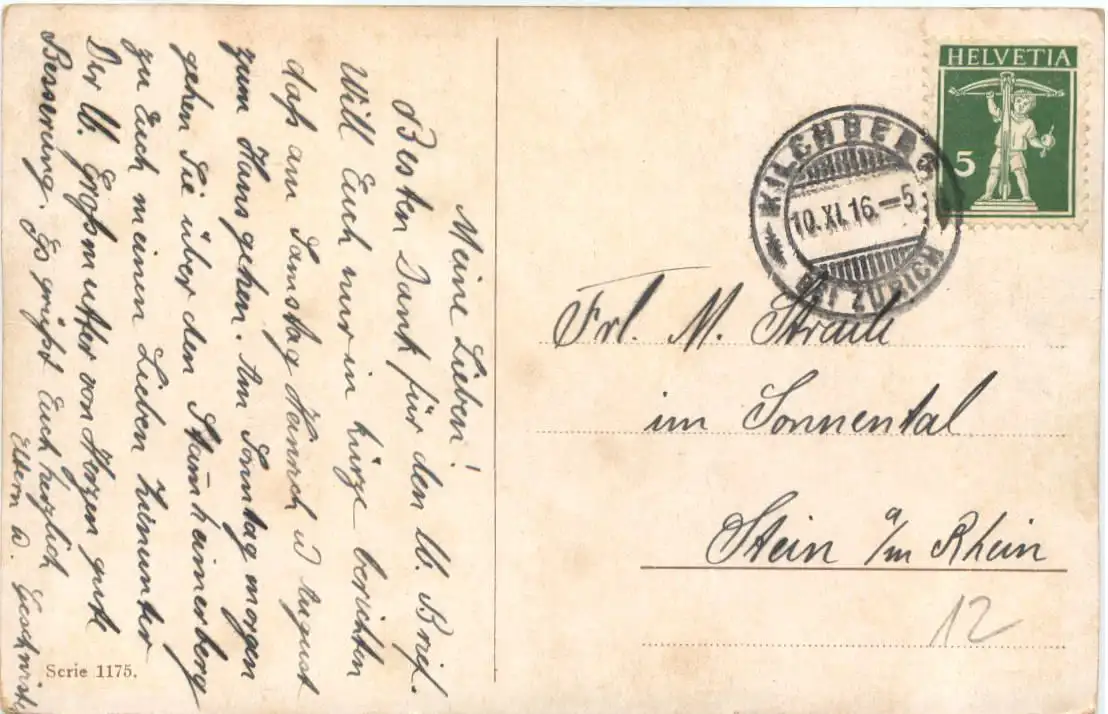 Meine Lieben!
Besten Dank für den lb. Brief.
Will Euch nur in kürze berichten
daß am Samstag Heinrich u August
zum Hans gehen. Am Sonntag morgen
gehen Sie über den Stam̄heimerberg
zu Euch meinen Lieben hinunter
Der lb. Großmutter von Herzen gute
Besserung. Es grüßt Euch herzlich
Eltern u. Geschwister
Serie 1175.
HELVETIA
5
KILCHBERG
10.XI.16.–5
BEI ZÜRICH
Frl. M.
im Sonnental
Stein a/m Rhein
12